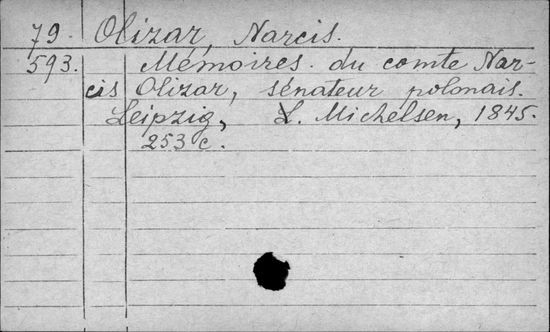 79. Olizar, Narcis.
593. Mémoires du comte Nar-
cis Olizar, sénateur polonais.
Leipzig, L. Michelsen, 1845.
253 c.